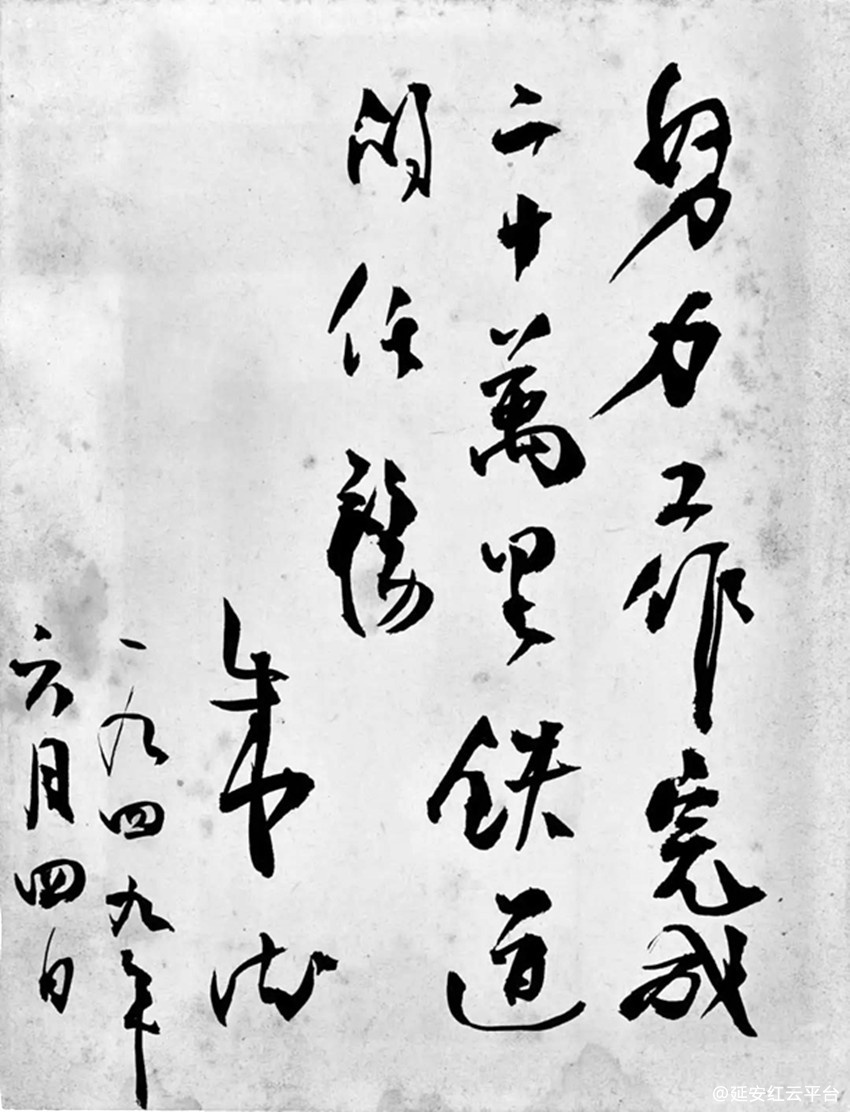 努力工作完成
二十萬里铁道
的任務
朱德
一九四九年
六月四日
@延安红云平台